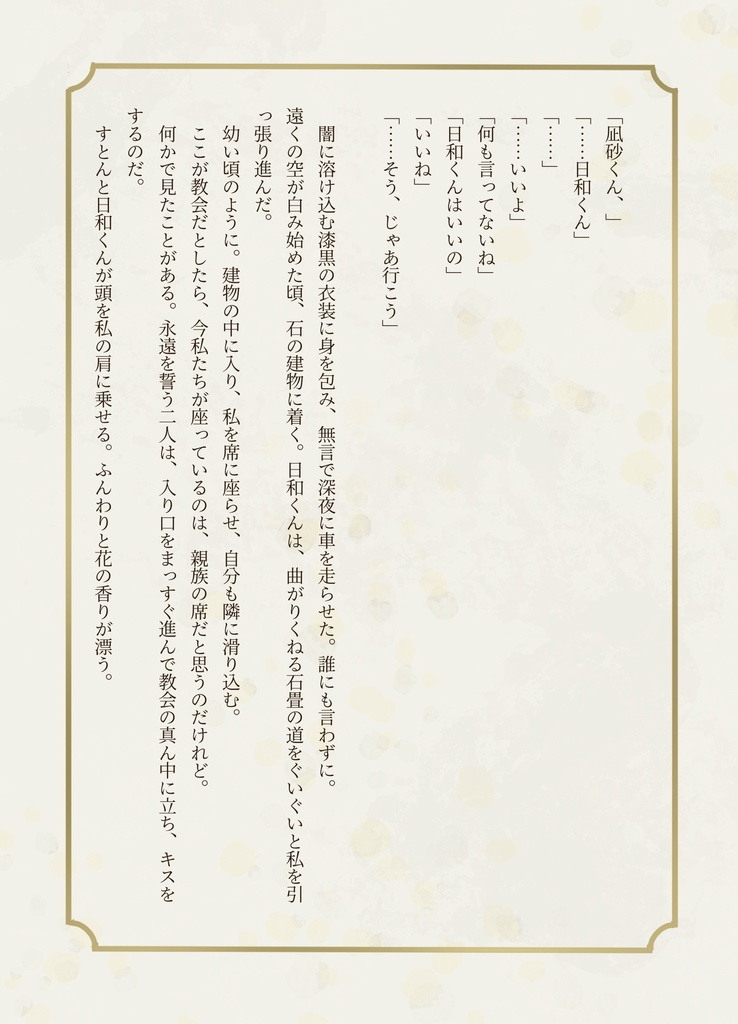 「凪砂くん、」
「……日和くん」
「……」
「……いいよ」
「何も言ってないね」
「日和くんはいいの」
「いいね」
「……そう、じゃあ行こう」
闇に溶け込む漆黒の衣装に身を包み、無言で深夜に車を走らせた。誰にも言わずに。
遠くの空が白み始めた頃、石の建物に着く。日和くんは、曲がりくねる石畳の道をぐいぐいと私を引
っ張り進んだ。
幼い頃のように。建物の中に入り、私を席に座らせ、自分も隣に滑り込む。
ここが教会だとしたら、今私たちが座っているのは、親族の席だと思うのだけれど。
何かで見たことがある。永遠を誓う二人は、入り口をまっすぐ進んで教会の真ん中に立ち、キスを
するのだ。
すとんと日和くんが頭を私の肩に乗せる。ふんわりと花の香りが漂う。